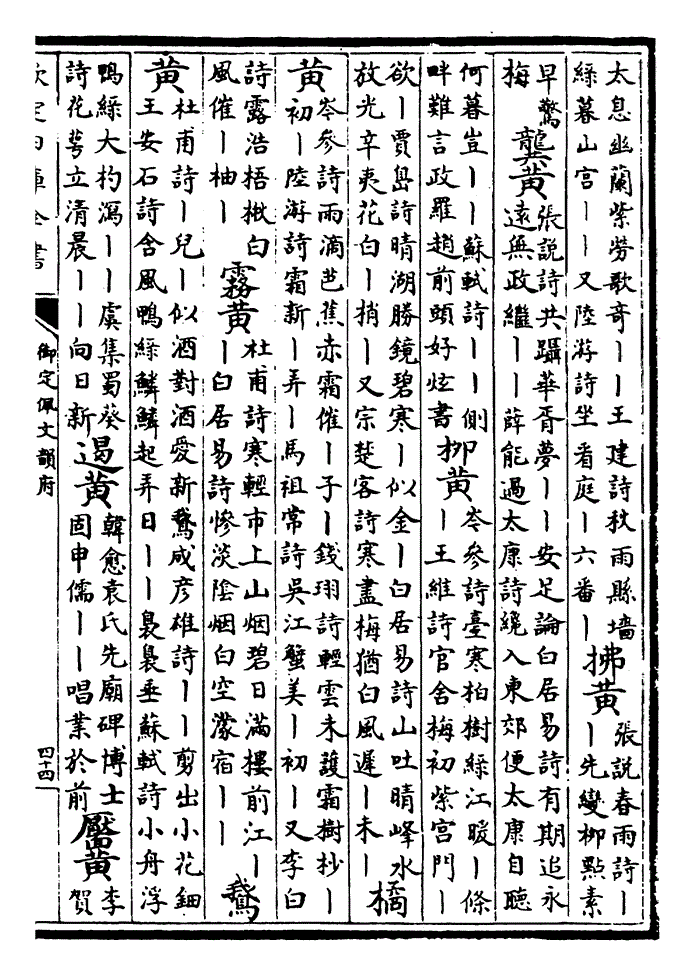 太息幽蘭紫勞歌奇丨丨王建詩秋雨縣墻
綠暮山宫丨丨又陸游詩坐看庭丨六番丨
拂黄
張說春雨詩丨
丨先變柳點素
早驚
梅
龔黄
張說詩共躡華胥夢丨丨安足論白居易詩有期追永
遠無政繼丨丨薛能過太康詩纔入東郊便太康自聽
何暮豈丨丨蘇軾詩丨丨側
畔難言政羅趙前頭好炫書
柳黄
岑參詩臺寒柏樹綠江暖丨條
丨王維詩官舍梅初紫宫門丨
欲丨賈島詩晴湖勝鏡碧寒丨似金丨白居易詩山吐晴峰水
放光辛夷花白丨梢丨又宗楚客詩寒盡梅猶白風遲丨未丨
橘
黄
岑參詩雨滴芭蕉赤霜催丨子丨錢珝詩輕雲未護霜樹杪丨
初丨陸游詩霜新丨弄丨馬祖常詩吳江蟹美丨初丨又李白
詩露浩梧楸白
風催丨柚丨
霧黄
杜甫詩寒輕市上山烟碧日滿樓前江丨
丨白居易詩慘淡陰烟白空濛宿丨丨
鵞
黄
杜甫詩丨兒丨似酒對酒愛新鵞咸彦雄詩丨丨剪出小花鈿
王安石詩含風鴨綠鱗鱗起弄日丨丨裊裊垂蘇軾詩小舟浮
鴨綠大杓瀉丨丨虞集蜀葵
詩花萼立清晨丨丨丨向日新
遏黄
韓愈袁氏先廟碑博士
固申儒丨丨唱業於前
靨黄
李
賀
欽定四庫全書
御定佩文韻府
四十四